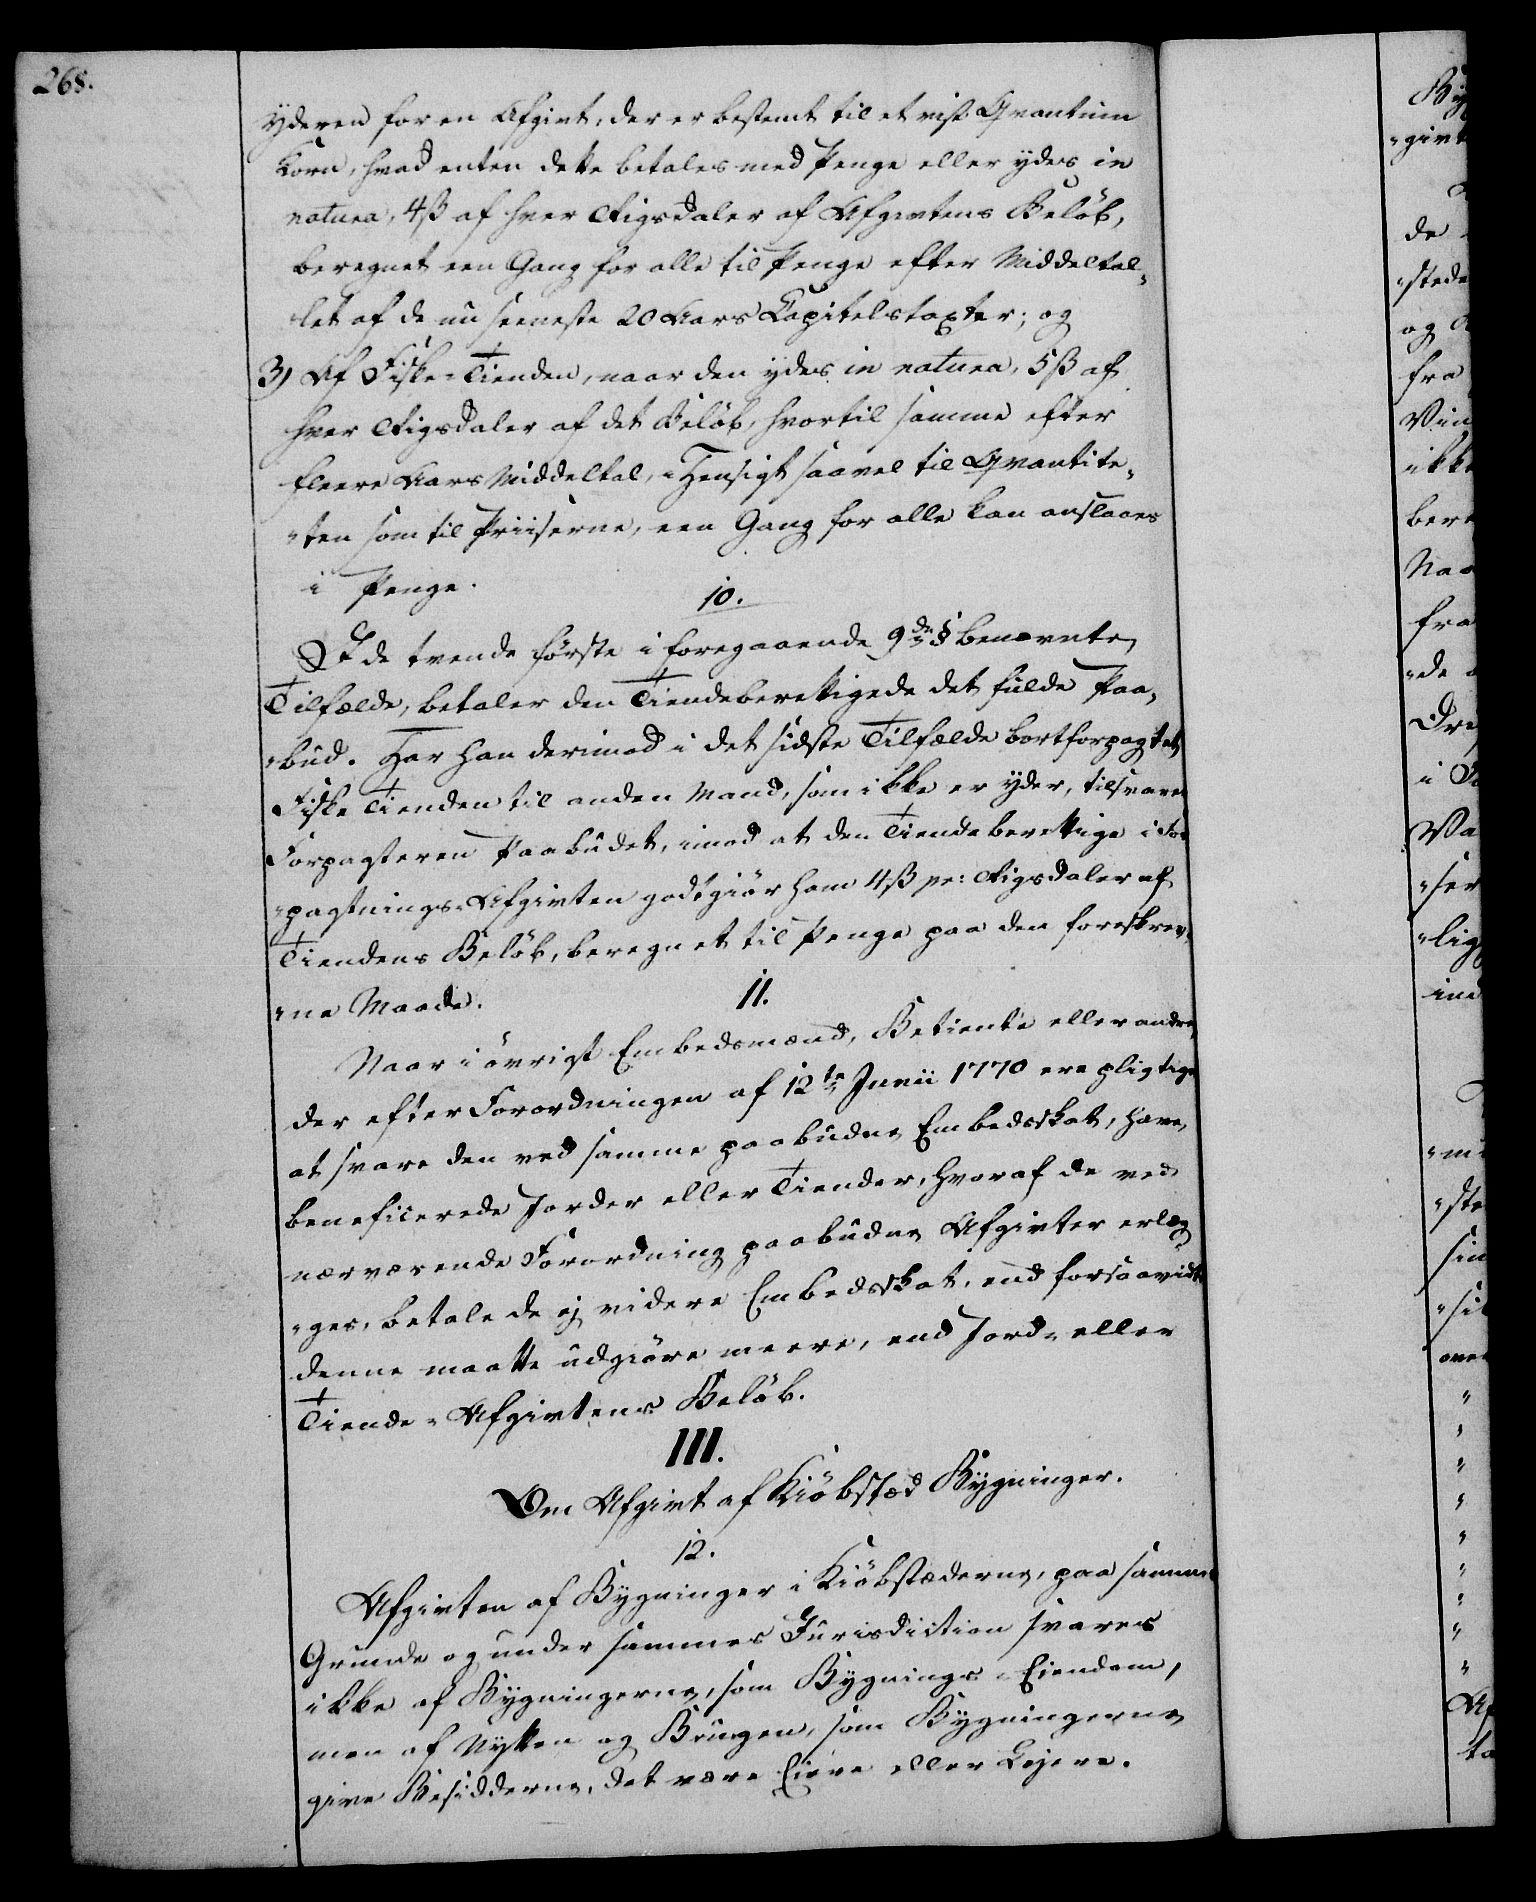 268.
yderen for en Afgivt, der er bestemt til et vist Qvantum
Korn, hvad enten dette betales med Penge eller ydes in
natura, 4ß af hver Rigsdaler af Afgivtens Beløb,
beregnet een Gang for alle til Penge efter Middeltal„
let af de nu seeneste 20 Aars Capitelstaxter; og
3) Af Fiske-Tienden, naar den ydes in natura, 5ß af
hver Rigsdaler af det Beløb, hvortil samme efter
fleere Aars Middeltal, i Hensigt saavel til Qvantite„
„ten som til Priiserne, een Gang for alle kan anslaaes
i Penge.
10.
I de tvende første i foregaaende 9de § benævnte
Tilfælde, betaler den Tiendeberettigede det fulde Paa„
„bud. Har han derimod i det sidste Tilfælde bortforpagtet
Fiske Tienden til anden Mand, som ikke er yder, tilsvarer
Forpagteren Paabudet, imod at den Tiendeberettige i For
„pagtnings-Afgivten godtgiør ham 4ß pr: Rigsdaler af
Tiendens Beløb, beregnet til Penge paa den foreskrev„
„ne Maade.
11.
Naar i øvrigt Embedsmænd, Betiente eller andre,
der efter Forordningen af 12te Junii 1770 ere pligtige
at svare den ved samme paabudne Embedsskat, have
beneficerede Jorder eller Tiender, hvoraf de ved
nærværende Forordning paabudne Afgivter erlæg
„ges, betale de ej videre Embedsskat, end forsaavidt
denne maatte udgiøre meere, end Jord- eller
Tiende-Afgivtens Beløb.
III.
Om Afgivt af Kiøbstæd Bygninger.
12.
Afgivten af Bygninger i Kiøbstæderne, paa sammes
Grunde og under sammes Jurisdiction svares
ikke af Bygningerne, som Bygnings-Eiendom,
men af Nytten og Brugen, som Bygningerne
give Besidderne, det være Eiere eller Lejere.